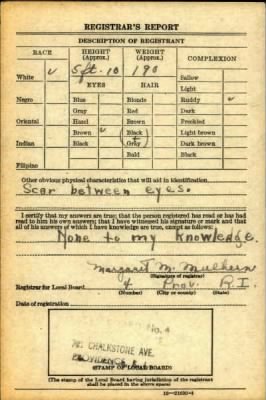 REGISTRAR'S REPORT
DESCRIPTION OF REGISTRANT
RACE HEIGHT (Approx.) WEIGHT (Approx.) COMPLEXION
White ✓ 5ft. 10 190 Sallow
EYES HAIR Light
Negro Blue Blonde Ruddy ✓
Gray Red Dark
Oriental Hazel Brown Freckled
Brown ✓ Black Light brown
Indian Black Gray Dark brown
Bald Black
Filipino
Other obvious physical characteristics that will aid in identification
Scar between eyes.
I certify that my answers are true; that the person registered has read or has had
read to him his own answers; that I have witnessed his signature or mark and that
all of his answers of which I have knowledge are true, except as follows:
None to my knowledge.
Margaret M. Mulhern
(Signature of registrar)
Registrar for Local Board 4 Prov. R.I.
(Number) (City or county) (State)
Date of registration
No. 4
CHALKSTONE AVE.
PROVIDENCE
(STAMP OF LOCAL BOARD)
(The stamp of the Local Board having jurisdiction of the registrant
shall be placed in the above space)